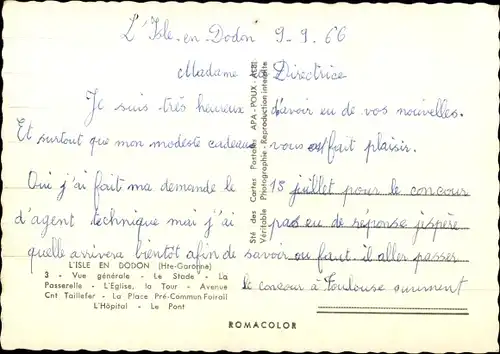 L'Isle-en-Dodon 9-9-66
Madame la Directrice
Je suis très heureux d'avoir eu de vos nouvelles.
Et surtout que mon modeste cadeau vous fait plaisir.
Oui j'ai fait ma demande le 18 juillet pour le concour
d'agent technique mai j'ai pas eu de réponse jspère
quelle arrivera bientôt afin de savoir ou faut il aller passer
le concour à Toulouse surement
Sté des Cartes Postales APA-POUX-ALBI
Véritable Photographie-Reproduction interdite
L'ISLE EN DODON (Hte-Garonne)
3 - Vue générale - Le Stade - La
Passerelle - L'Eglise, la Tour - Avenue
Cnt Taillefer - La Place Pré-Commun Foirail
L'Hôpital - Le Pont
ROMACOLOR